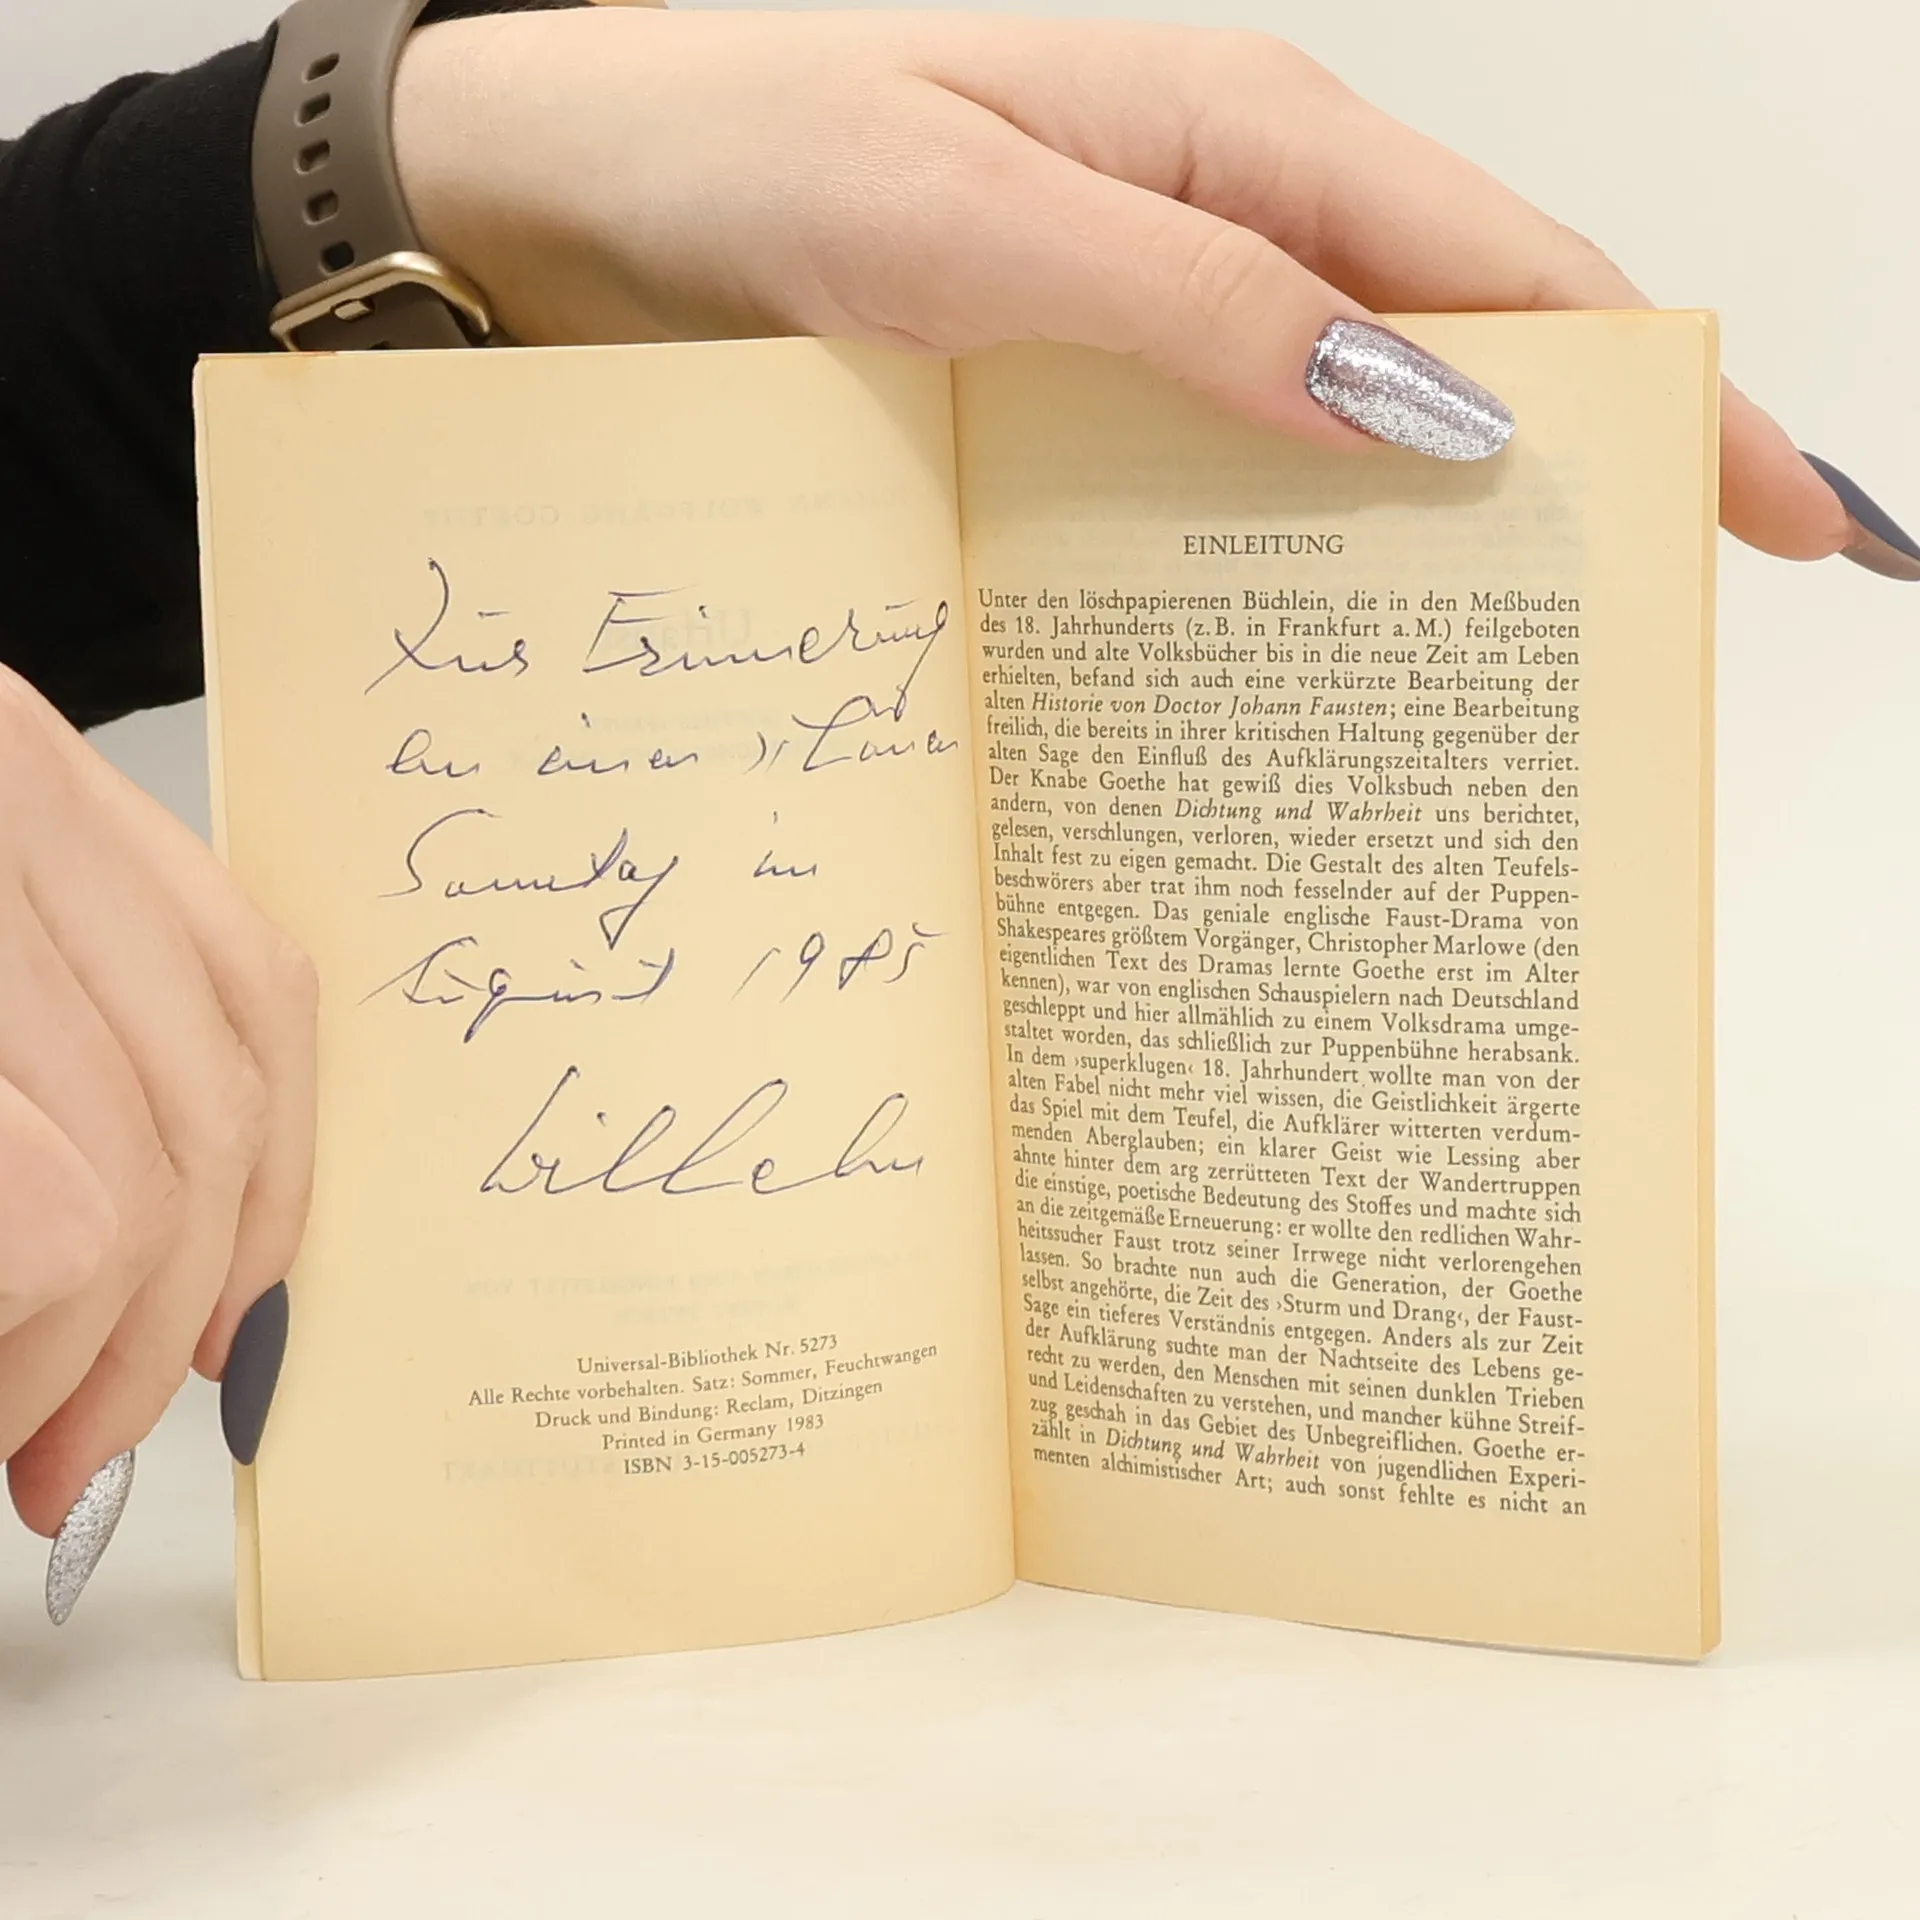 Zur Erinnerung
an einen
Samstag im
August 1985
Wilhelm
Universal-Bibliothek Nr. 5273
Alle Rechte vorbehalten. Satz: Sommer, Feuchtwangen
Druck und Bindung: Reclam, Ditzingen
Printed in Germany 1983
ISBN 3-15-005273-4
EINLEITUNG
Unter den löschpapierenen Büchlein, die in den Meßbuden
des 18. Jahrhunderts (z. B. in Frankfurt a. M.) feilgeboten
wurden und alte Volksbücher bis in die neue Zeit am Leben
erhielten, befand sich auch eine verkürzte Bearbeitung der
alten Historie von Doctor Johann Fausten; eine Bearbeitung
freilich, die bereits in ihrer kritischen Haltung gegenüber der
alten Sage den Einfluß des Aufklärungszeitalters verriet.
Der Knabe Goethe hat gewiß dies Volksbuch neben den
andern, von denen Dichtung und Wahrheit uns berichtet,
gelesen, verschlungen, verloren, wieder ersetzt und sich den
Inhalt fest zu eigen gemacht. Die Gestalt des alten Teufels-
beschwörers aber trat ihm noch fesselnder auf der Puppen-
bühne entgegen. Das geniale englische Faust-Drama von
Shakespeares größtem Vorgänger, Christopher Marlowe (den
eigentlichen Text des Dramas lernte Goethe erst im Alter
kennen), war von englischen Schauspielern nach Deutschland
geschleppt und hier allmählich zu einem Volksdrama umge-
staltet worden, das schließlich zur Puppenbühne herabsank.
In dem ›superklugen‹ 18. Jahrhundert wollte man von der
alten Fabel nicht mehr viel wissen, die Geistlichkeit ärgerte
das Spiel mit dem Teufel, die Aufklärer witterten verdum-
menden Aberglauben; ein klarer Geist wie Lessing aber
ahnte hinter dem arg zerrütteten Text der Wandertruppen
die einstige, poetische Bedeutung des Stoffes und machte sich
an die zeitgemäße Erneuerung: er wollte den redlichen Wahr-
heitssucher Faust trotz seiner Irrwege nicht verlorengehen
lassen. So brachte nun auch die Generation, der Goethe
selbst angehörte, die Zeit des ›Sturm und Drang‹, der Faust-
Sage ein tieferes Verständnis entgegen. Anders als zur Zeit
der Aufklärung suchte man der Nachtseite des Lebens ge-
recht zu werden, den Menschen mit seinen dunklen Trieben
und Leidenschaften zu verstehen, und mancher kühne Streif-
zug geschah in das Gebiet des Unbegreiflichen. Goethe er-
zählt in Dichtung und Wahrheit von jugendlichen Experi-
menten alchimistischer Art; auch sonst fehlte es nicht an